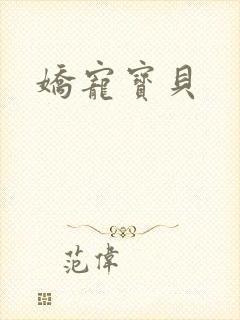 嬌寵寶貝
范偉